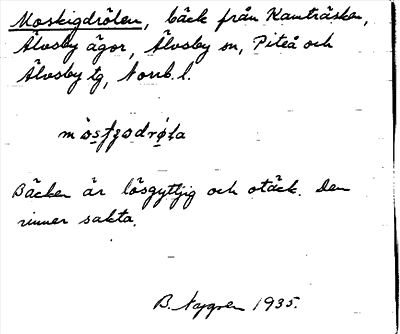 Moskigdrölen, bäck från Kamträsken,
Älvsby ägor, Älvsby sn, Piteå och
Älvsby tg, Norrb. l.
Bäcken är lösgyttjig och otäck. Den
rinner sakta.
B. Nygren 1935.